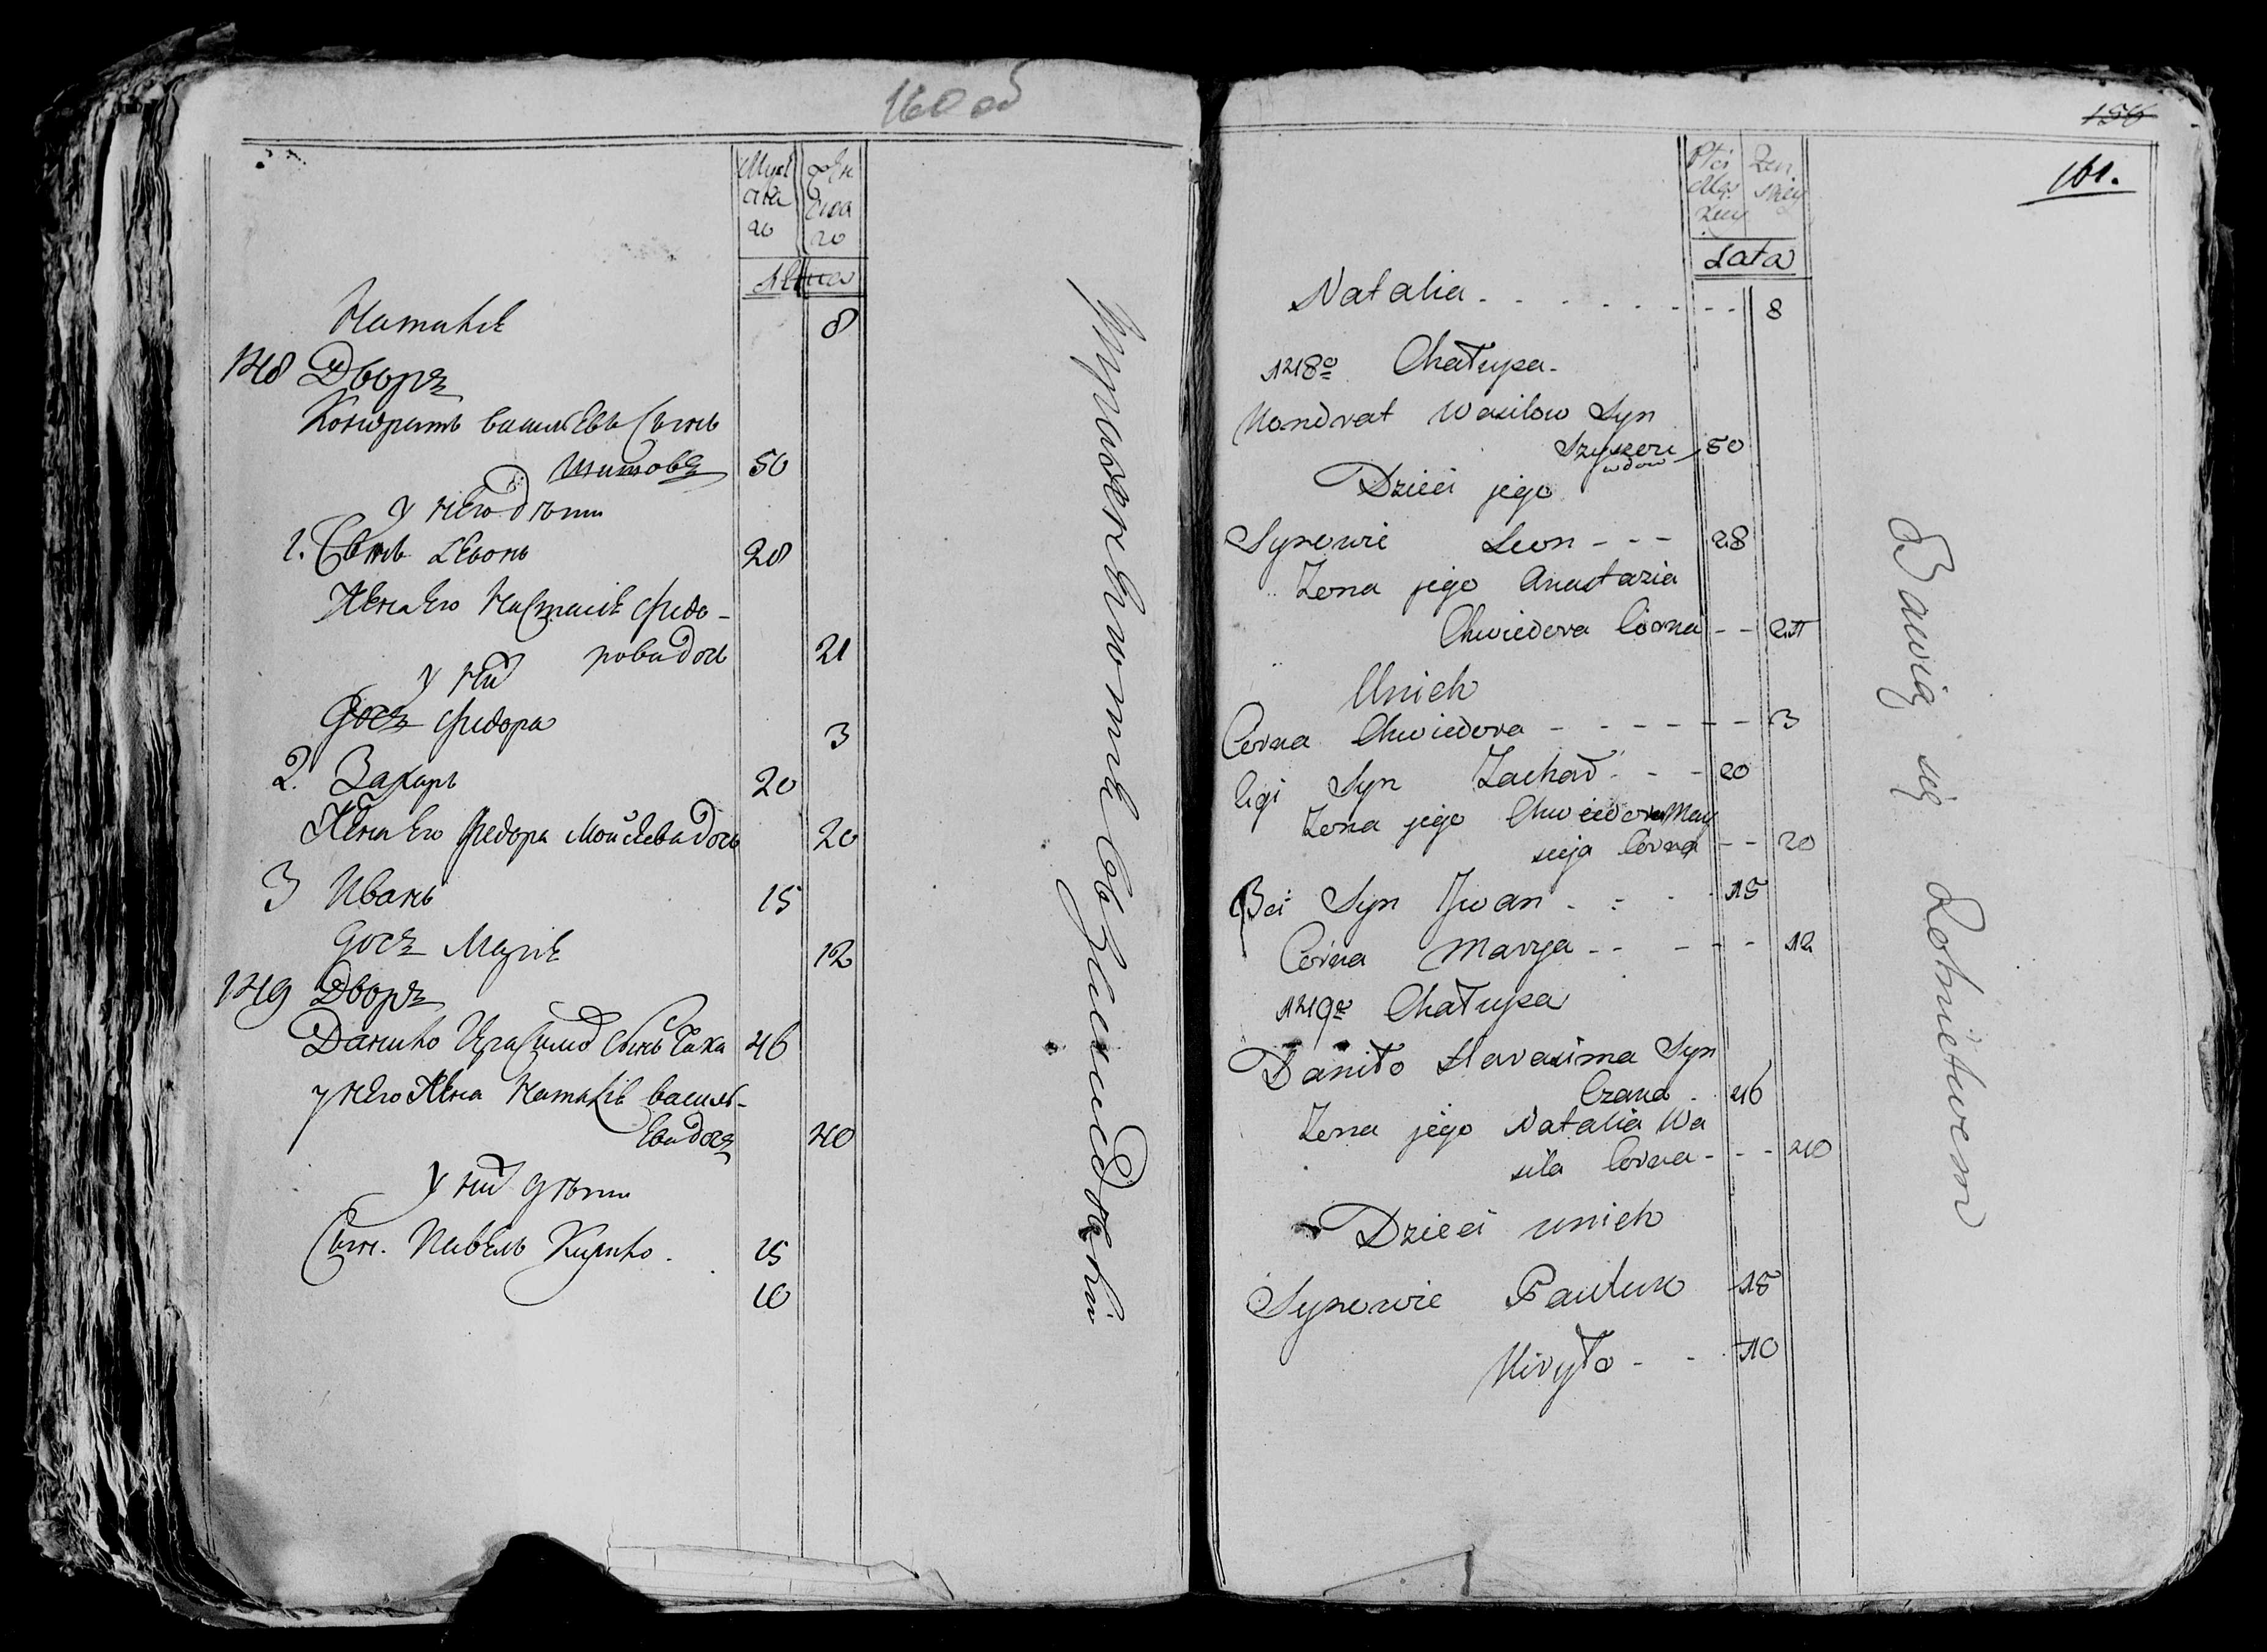 160 об
Мужескаго
Женскаго
Лета
Наталія 8
148 Дворъ
Кондратъ Васильевъ Сынъ
50
У него дѣти
1. Сынъ Левонъ 28
Жена Его Настасія Федо-
рова дочь 21
У них
Дочь Федора 3
2. Захаръ 20
Жена Его Федора Мойсеева дочь 20
3 Иванъ 15
Дочь Марія 12
149 Дворъ
Данило Герасимов Сынъ Чака 46
у него Жена Наталія Василь-
ева дочь 40
У них дѣти
Сын. Павелъ Кирило. 15
10
156
161.
Płci Męzkiey
Zenskiey
Lata
Natalia - - - - - - - - 8
148º Chałupa -
Kondrat Wasilow Syn
wdow 50
Dzieci jego
Synowie Leon - - - 28
Zona jego Anastazia
Chwiedora Córka - - 21
Unich
Corka Chwiedora - - - - - - - 3
2gi Syn Zachar - - - 20
Zona jego Chwiedora May
sieja Córka - - 20
3ci Syn Jwan - - - - 15
Córka Marya - - - - - 12
149º Chałupa
Daniło Harasima Syn
Czaka - 46
Zona jego Natalia Wa
sila Corka - - - 40
Dzieci unich
Synowie Pawluk 15
Kiryło - - 10
Bawią się Rolnictwem